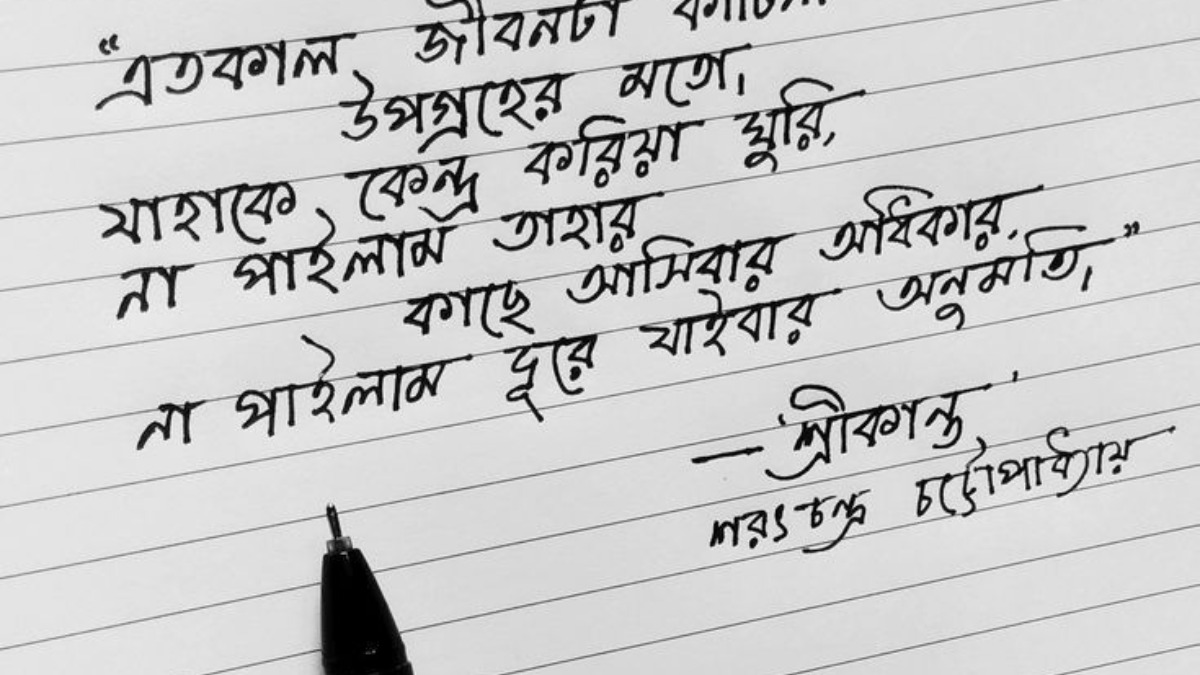 “এতকাল জীবনটা
উপগ্রহের মতো।
যাহাকে কেন্দ্র করিয়া ঘুরি,
না পাইলাম তাহার
কাছে আসিবার অধিকার,
না পাইলাম দূরে যাইবার অনুমতি।”
— 'শ্রীকান্ত'
শরৎচন্দ্র চট্টোপাধ্যায়